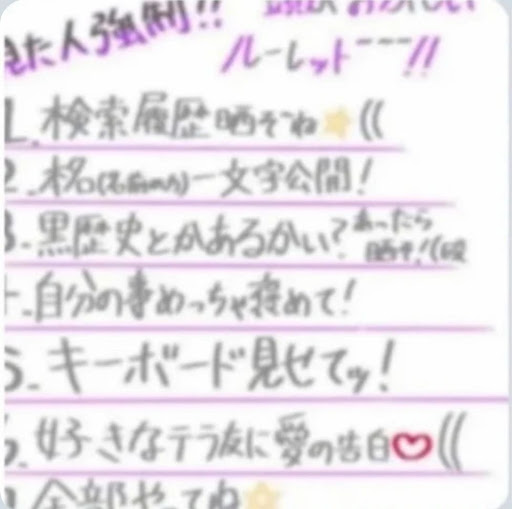 見た人強制!!
ルーレット---!!
1.検索履歴晒そね((
2.本名(名前のみ)一文字公開!
3.黒歴史とかあるかい?あったら
晒そ!(殴
4.自分の事めっちゃ褒めて!
5.キーボード見せてッ!
6.好きなテラ友に愛の告白♡((
全部やってね